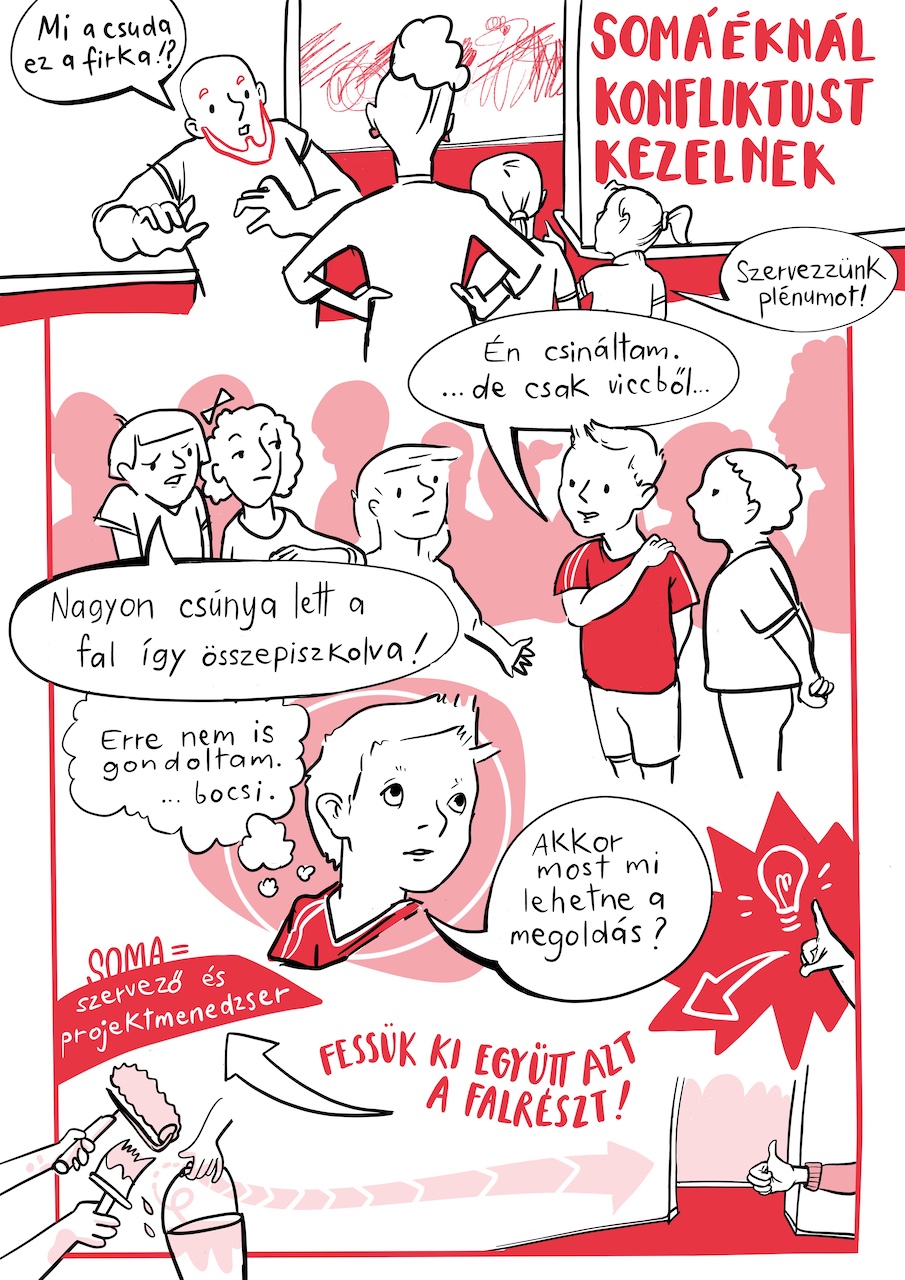 Mi a csuda
ez a firka!?
SOMÁÉKNÁL
KONFLIKTUST
KEZELNEK
Szervezzünk
plénumot!
Én csináltam.
...de csak viccből...
Nagyon csúnya lett a
fal így összepiszkolva!
Erre nem is
gondoltam.
... bocsi.
Akkor
most mi
lehetne a
megoldás?
SOMA =
szervező és
projektmenedzser
FESSÜK KI EGYÜTT AZT
A FALRÉSZT!